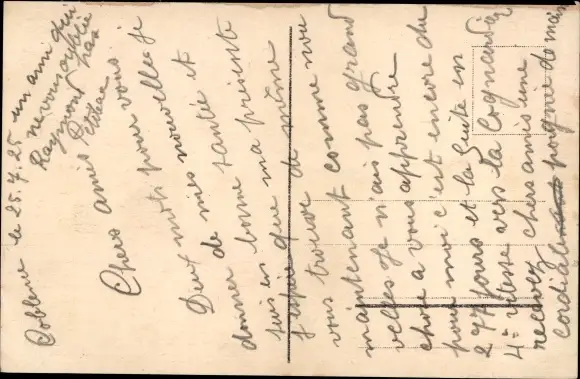 Coblenz le 25.7.25
Chers amis
Deux mots pour vous
de mes nouvelles et
donner bonne santé
que ma présente
J'espère de même
vous trouve comme nou
maintenant pas grand
velles je n'ais
chose a vous apprendre
pour moi c'est encore du
297 jours et la fuite en
4e vitesse vers la
recevez chers amis une
cordiale poignée de main
un ami qui
ne vous oublie
pas
Raymond